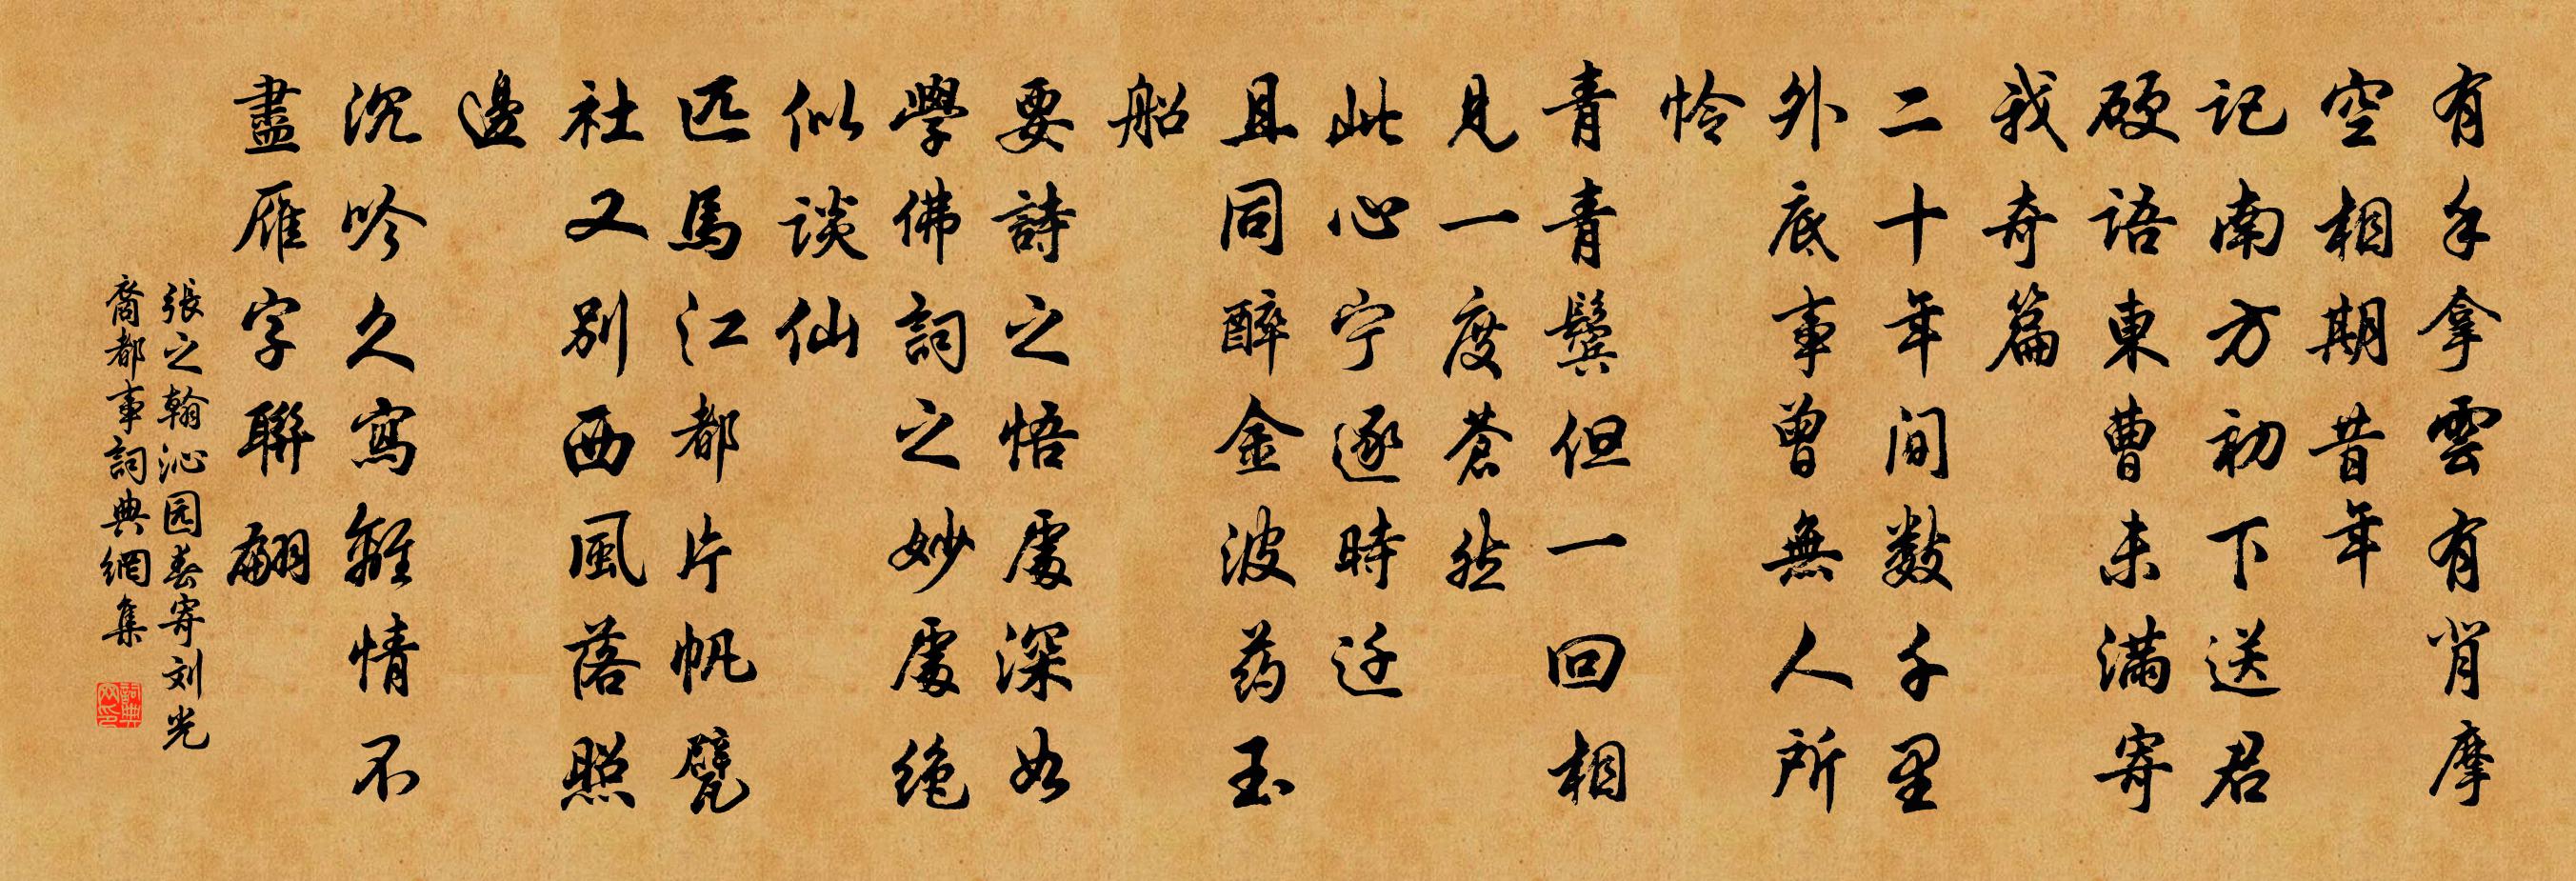 有手拿雲有肖摩
空相期昔年
記南方初下送君
硬語東曹未滿寄
我奇篇
二十年間数千里
外底事曾無人所
怜
青青鬓但一回相
見一度蒼然
此心宁逐時迁
且同醉金波药玉
船
要詩之悟處深如
學佛詞之妙處绝
似谈仙
匹馬江都片帆甓
社又别西風落照
邊
沉吟久寫難情不
盡雁字聯翩
張之翰沁园春寄刘光
裔都事詞典網集
詞典网印